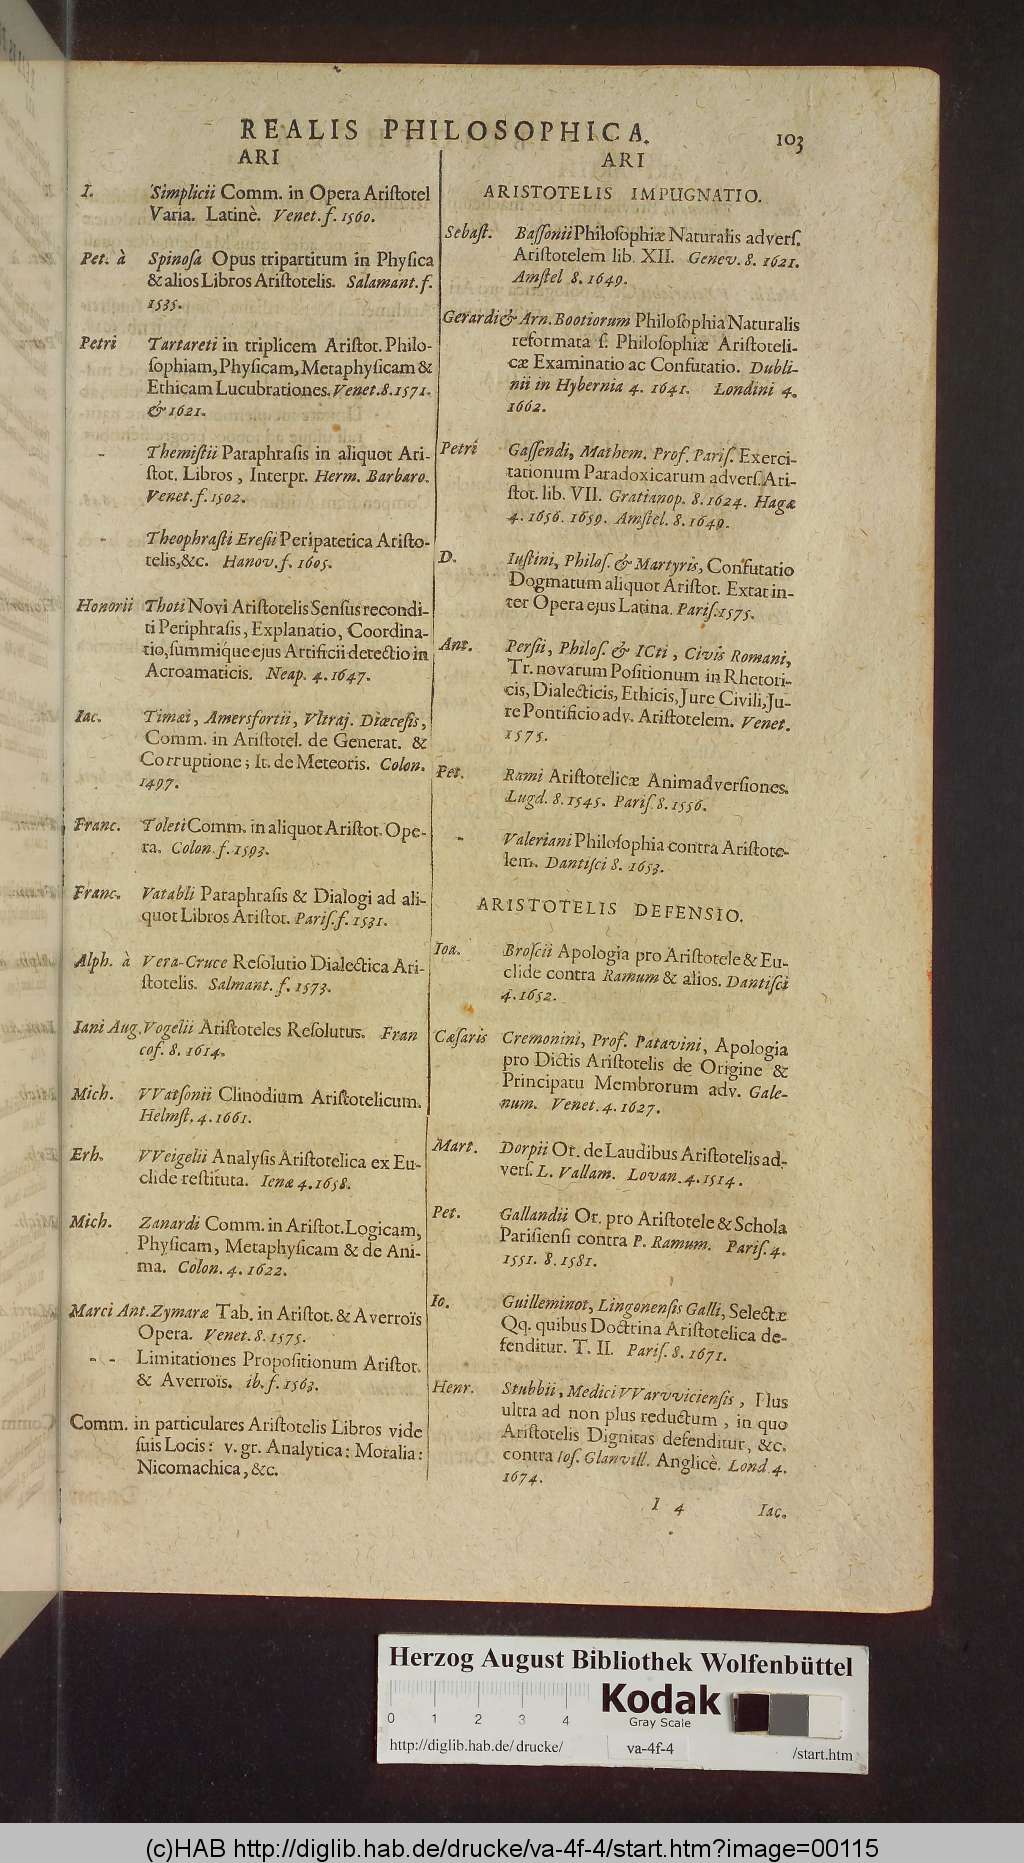 REALIS PHILOSOPHICA.
103
ARI
I. Simplicii Comm. in Opera Aristotel
Varia. Latinè. Venet. f. 1560.
Pet. à Spinosa Opus tripartitum in Physica
& alios Libros Aristotelis. Salamant. f.
1535.
Petri Tartareti in triplicem Aristot. Philo-
sophiam, Physicam, Metaphysicam &
Ethicam Lucubrationes. Venet. 8. 1571.
& 1621.
- Themistii Paraphrasis in aliquot Ari-
stot. Libros, Interpr. Herm. Barbaro.
Venet. f. 1502.
- Theophrasti Eresii Peripatetica Aristo-
telis, &c. Hanov. f. 1605.
Honorii Thoti Novi Aristotelis Sensus recondi-
ti Periphrasis, Explanatio, Coordina-
tio, summique ejus Artificii detectio in
Acroamaticis. Neap. 4. 1647.
Iac. Timæi, Amersfortii, Vltraj. Diœcesis,
Comm. in Aristotel. de Generat. &
Corruptione; It. de Meteoris. Colon.
1497.
Franc. Toleti Comm. in aliquot Aristot. Ope-
ra. Colon. f. 1593.
Franc. Vatabli Paraphrasis & Dialogi ad ali-
quot Libros Aristot. Paris. f. 1531.
Alph. à Vera-Cruce Resolutio Dialectica Ari-
stotelis. Salmant. f. 1573.
Iani Aug. Vogelii Aristoteles Resolutus. Fran
cof. 8. 1614.
Mich. VVatsonii Clinodium Aristotelicum.
Helmst. 4. 1661.
Erh. VVeigelii Analysis Aristotelica ex Eu-
clide restituta. Ienæ 4. 1658.
Mich. Zanardi Comm. in Aristot. Logicam,
Physicam, Metaphysicam & de Ani-
ma. Colon. 4. 1622.
Marci Ant. Zymaræ Tab. in Aristot. & Averroïs
Opera. Venet. 8. 1575.
- - Limitationes Propositionum Aristot.
& Averroïs. ib. f. 1563.
Comm. in particulares Aristotelis Libros vide
suis Locis: v. gr. Analytica: Moralia:
Nicomachica, &c.
ARI
ARISTOTELIS IMPUGNATIO.
Sebast. Bassonii Philosophiæ Naturalis advers.
Aristotelem lib. XII. Genev. 8. 1621.
Amstel 8. 1649.
Gerardi & Arn. Bootiorum Philosophia Naturalis
reformata s. Philosophiæ Aristoteli-
cæ Examinatio ac Confutatio. Dubli-
nii in Hybernia 4. 1641. Londini 4.
1662.
Petri Gassendi, Mathem. Prof. Paris. Exerci-
tationum Paradoxicarum advers. Ari-
stot. lib. VII. Gratianop. 8. 1624. Hagæ
4. 1656. 1659. Amstel. 8. 1649.
D. Iustini, Philos. & Martyris, Confutatio
Dogmatum aliquot Aristot. Extat in-
ter Opera ejus Latina. Paris. 1575.
Ant. Persii, Philos. & ICti, Civis Romani,
Tr. novarum Positionum in Rhetori-
cis, Dialecticis, Ethicis, Jure Civili, Ju-
re Pontificio adv. Aristotelem. Venet.
1575.
Pet. Rami Aristotelicæ Animadversiones.
Lugd. 8. 1545. Paris. 8. 1556.
- Valeriani Philosophia contra Aristote-
lem. Dantisci 8. 1653.
ARISTOTELIS DEFENSIO.
Ioa. Broscii Apologia pro Aristotele & Eu-
clide contra Ramum & alios. Dantisci
4. 1652.
Cæsaris Cremonini, Prof. Patavini, Apologia
pro Dictis Aristotelis de Origine &
Principatu Membrorum adv. Gale-
num. Venet. 4. 1627.
Mart. Dorpii Or. de Laudibus Aristotelis ad-
vers. L. Vallam. Lovan. 4. 1514.
Pet. Gallandii Or. pro Aristotele & Schola
Parisiensi contra P. Ramum. Paris. 4.
1551. 8. 1581.
Io. Guilleminot, Lingonensis Galli, Selectæ
Qq. quibus Doctrina Aristotelica de-
fenditur. T. II. Paris. 8. 1671.
Henr. Stubbii, Medici VVarvviciensis, Plus
ultra ad non plus reductum, in quo
Aristotelis Dignitas defenditur, &c.
contra Ios. Glanvill. Anglicè. Lond. 4.
1674.
I 4 Iac.
Herzog August Bibliothek Wolfenbüttel
Kodak
Gray Scale
0 1 2 3 4
http://diglib.hab.de/drucke/ va-4f-4 /start.htm
(c)HAB http://diglib.hab.de/drucke/va-4f-4/start.htm?image=00115